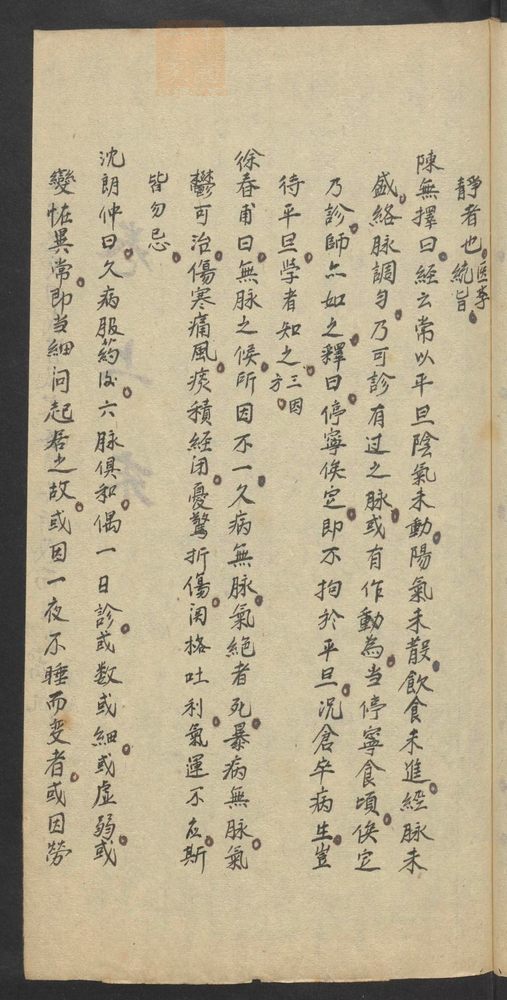 靜者也。医学統旨。
陳無擇曰。經云常以平旦陰氣未動陽氣未散。飲食未進。經脉未
盛。絡脉調勻。乃可診有过之脉。或有作動為当停寧食頃。俟定
乃診。師亦如之。釋曰。停寧俟定。即不拘於平旦。况倉卒病生。豈
待平旦。学者知之。三因方。
徐春甫曰。無脉之候。所因不一。久病無脉。氣絕者死。暴病無脉。氣
鬱可治。傷寒痛風。痰積經闭。憂驚折傷。関格吐利。氣運不应。斯
皆勿忌。
沈朗仲曰。久病服药后。六脉俱和。偶一日診。或数或細。或虚弱。或
變怪異常。即当細问起居之故。或因一夜不睡而变者。或因勞